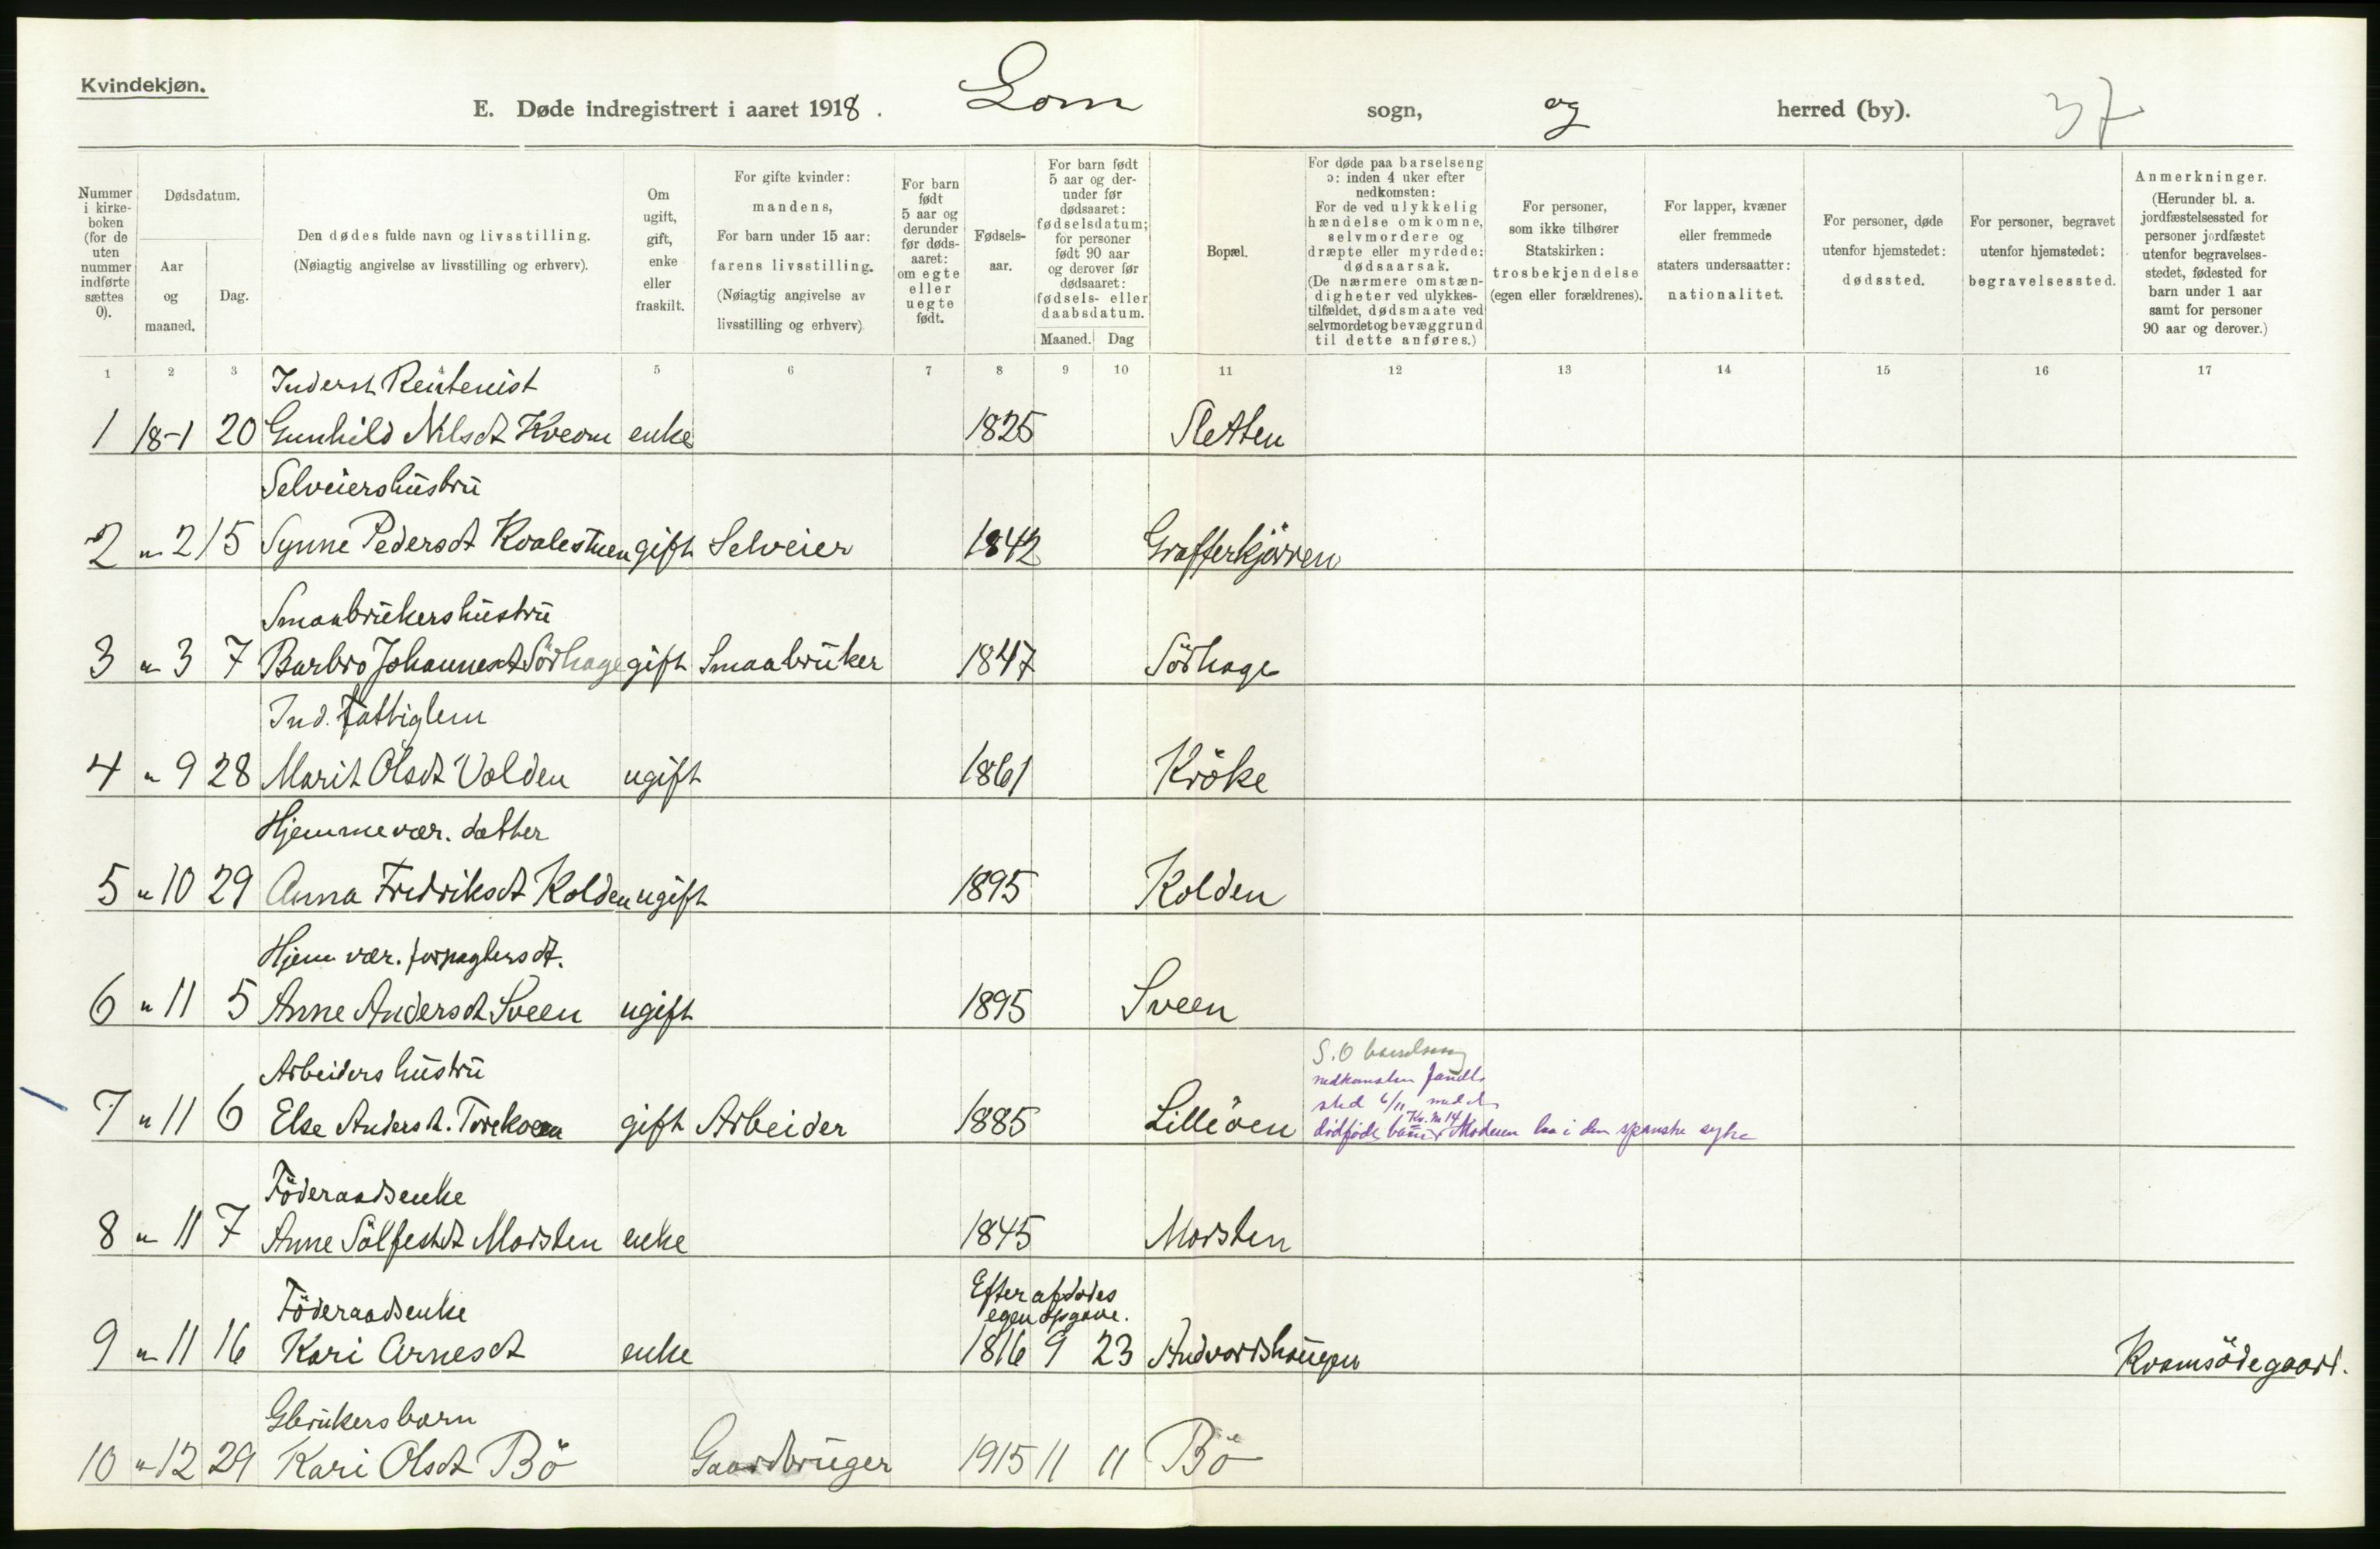 Kvindekjøn.
E. Døde indregistrert i aaret 1918. Lom sogn, og herred (by). 37
Nummer i kirkeboken (for de uten nummer indførte sættes 0).
Dødsdatum.
Aar og maaned.
Dag.
Den dødes fulde navn og livsstilling.
(Nøiagtig angivelse av livsstilling og erhverv).
Om ugift, gift, enke eller fraskilt.
For gifte kvinder: mandens,
For barn under 15 aar: farens livsstilling.
(Nøiagtig angivelse av livsstilling og erhverv)
For barn født 5 aar og derunder før dødsaaret: om egte eller uegte født.
Fødselsaar.
For barn født 5 aar og derunder før dødsaaret: fødselsdatum; for personer født 90 aar og derover før dødsaaret: fødsels- eller daabsdatum.
Maaned. Dag
Bopæl.
For døde paa barselseng ɔ: inden 4 uker efter nedkomsten:
For de ved ulykkelig hændelse omkomne, selvmordere og dræpte eller myrdede: dødsaarsak.
(De nærmere omstændigheter ved ulykkestilfældet, dødsmaate ved selvmordet og bevæggrund til dette anføres.)
For personer, som ikke tilhører Statskirken: trosbekjendelse (egen eller forældrenes).
For lapper, kvæner eller fremmede staters undersaatter: nationalitet.
For personer, døde utenfor hjemstedet: dødssted.
For personer, begravet utenfor hjemstedet: begravelsessted.
Anmerkninger.
(Herunder bl. a. jordfæstelsessted for personer jordfæstet utenfor begravelsesstedet, fødested for barn under 1 aar samt for personer 90 aar og derover.)
1 2 3 4 5 6 7 8 9 10 11 12 13 14 15 16 17
Inderst Rentenist
1 18-1 20 Gunhild Nilsdt Kveom enke 1825 Sletten
Selveiershustru
2 " 2 15 Synne Pedersdt Kvalestuen gift Selveier 1842 Grafferkjörren
Smaabrukershustru
3 " 3 7 Barbro Johannesdt Sörhage gift Smaabruker 1847 Sörhage
Ind. Fattiglem
4 " 9 28 Marit Olsdt Volden ugift 1861 Kröke
Hjemmevær. datter
5 " 10 29 Anna Fredriksdt Kolden ugift 1895 Kolden
Hjem vær. forpagtersdt.
6 " 11 5 Anne Andersdt Sveen ugift 1895 Sveen
Arbeiders hustru
7 " 11 6 Else Andersd. gift Arbeider 1885 Lilleöen
S.O barselseng
nedkomsten fandt
sted 6/11 med et
dödfödt barn Kv. № 14 Moderen laa i den spanske syke
Föderaadsenke
8 " 11 7 Anne Sölfestdt Morsten enke 1845 Morsten
Föderaadsenke Efter afdödes egen opgave.
9 " 11 16 Kari Arnesdt enke 1816 9 23 Andvordshaugen Kvamsödegaard.
Gbrukers barn
10 " 12 29 Kari Olsdt Bö Gaardbruger 1915 11 11 Bö